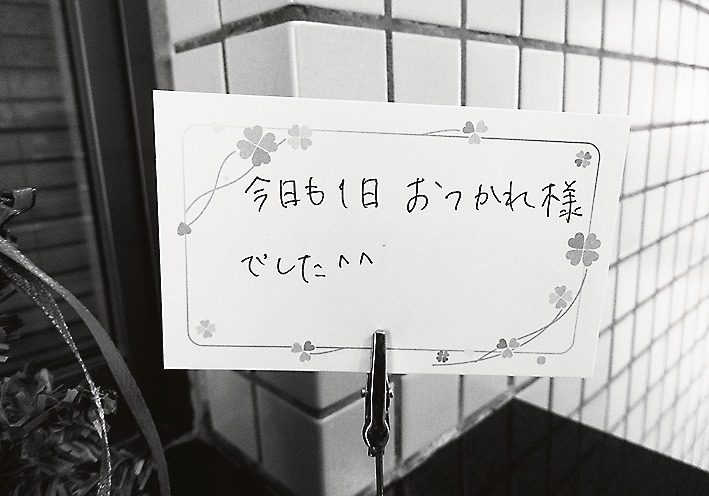 今日も1日 おつかれ様
でした^^